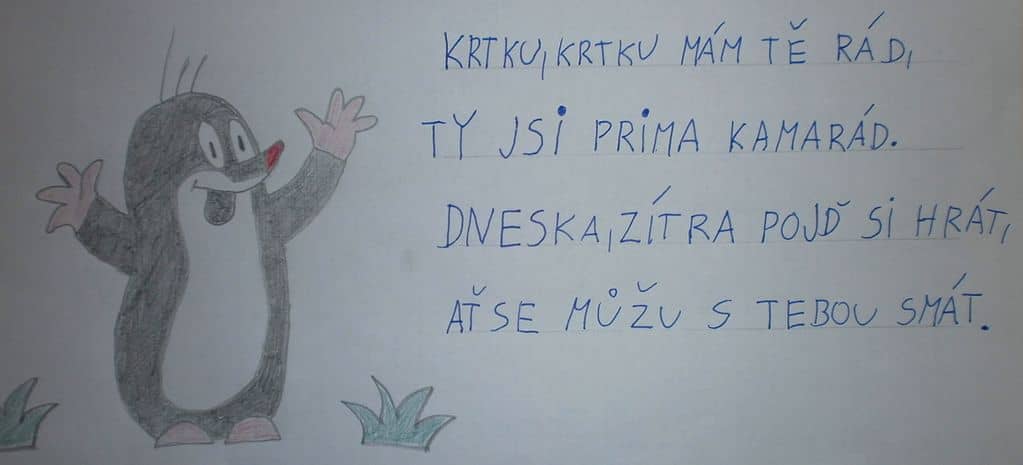 KRTKU, KRTKU MÁM TĚ RÁD,
TY JSI PRIMA KAMARÁD.
DNESKA, ZÍTRA POJĎ SI HRÁT,
AŤ SE MŮŽU S TEBOU SMÁT.